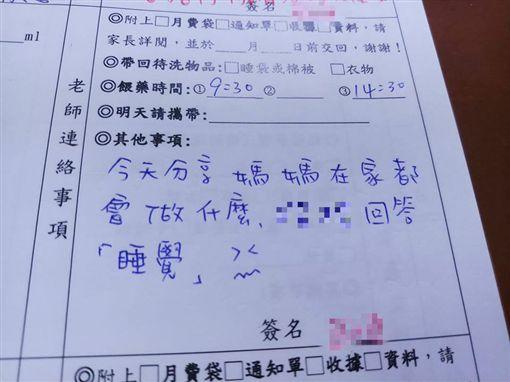 簽名
◎附上□月費袋□通知單□收據□資料，請
家長詳閱，並於____月____日前交回，謝謝！
ml
◎帶回待洗物品：□睡袋或棉被 □衣物
◎餵藥時間：①9:30 ② ③14:30
◎明天請攜帶：
◎其他事項：
今天分享媽媽在家都
會做什麼, 回答
「睡覺」 ><
老師連絡事項
簽名
◎附上□月費袋□通知單□收據□資料，請